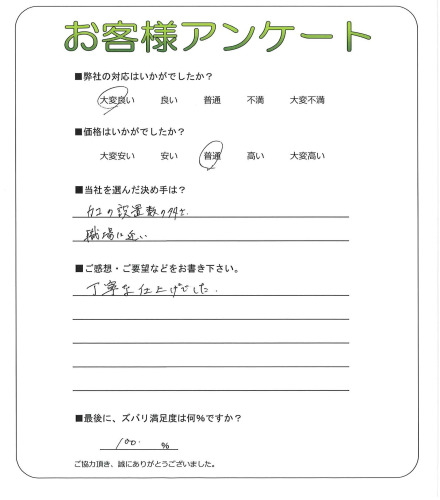 お客様アンケート
■弊社の対応はいかがでしたか？
大変良い 良い 普通 不満 大変不満
■価格はいかがでしたか？
大変安い 安い 普通 高い 大変高い
■当社を選んだ決め手は？
の設置数の多さ.
職場に近い
■ご感想・ご要望などをお書き下さい。
丁寧な仕上げでした.
■最後に、ズバリ満足度は何％ですか？
100. ％
ご協力頂き、誠にありがとうございました。